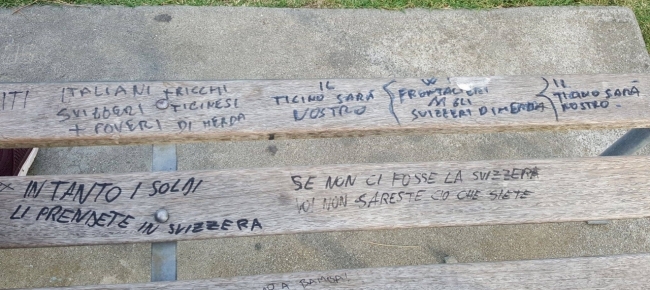 ITI
ITALIANI + RICCHI
SVIZZERI O TICINESI
+ POVERI DI MERDA
IL
TICINO SARÁ
NOSTRO
W.
FRONTALIERI
M GLI
SVIZZERI DI MERDA
IL
TICINO SARÁ
NOSTRO.
X INTANTO I SOLDI
LI PRENDETE IN SVIZZERA
SE NON CI FOSSE LA SVIZZERA
VOI NON SARESTE CIÒ CHE SIETE
A BAMBA!